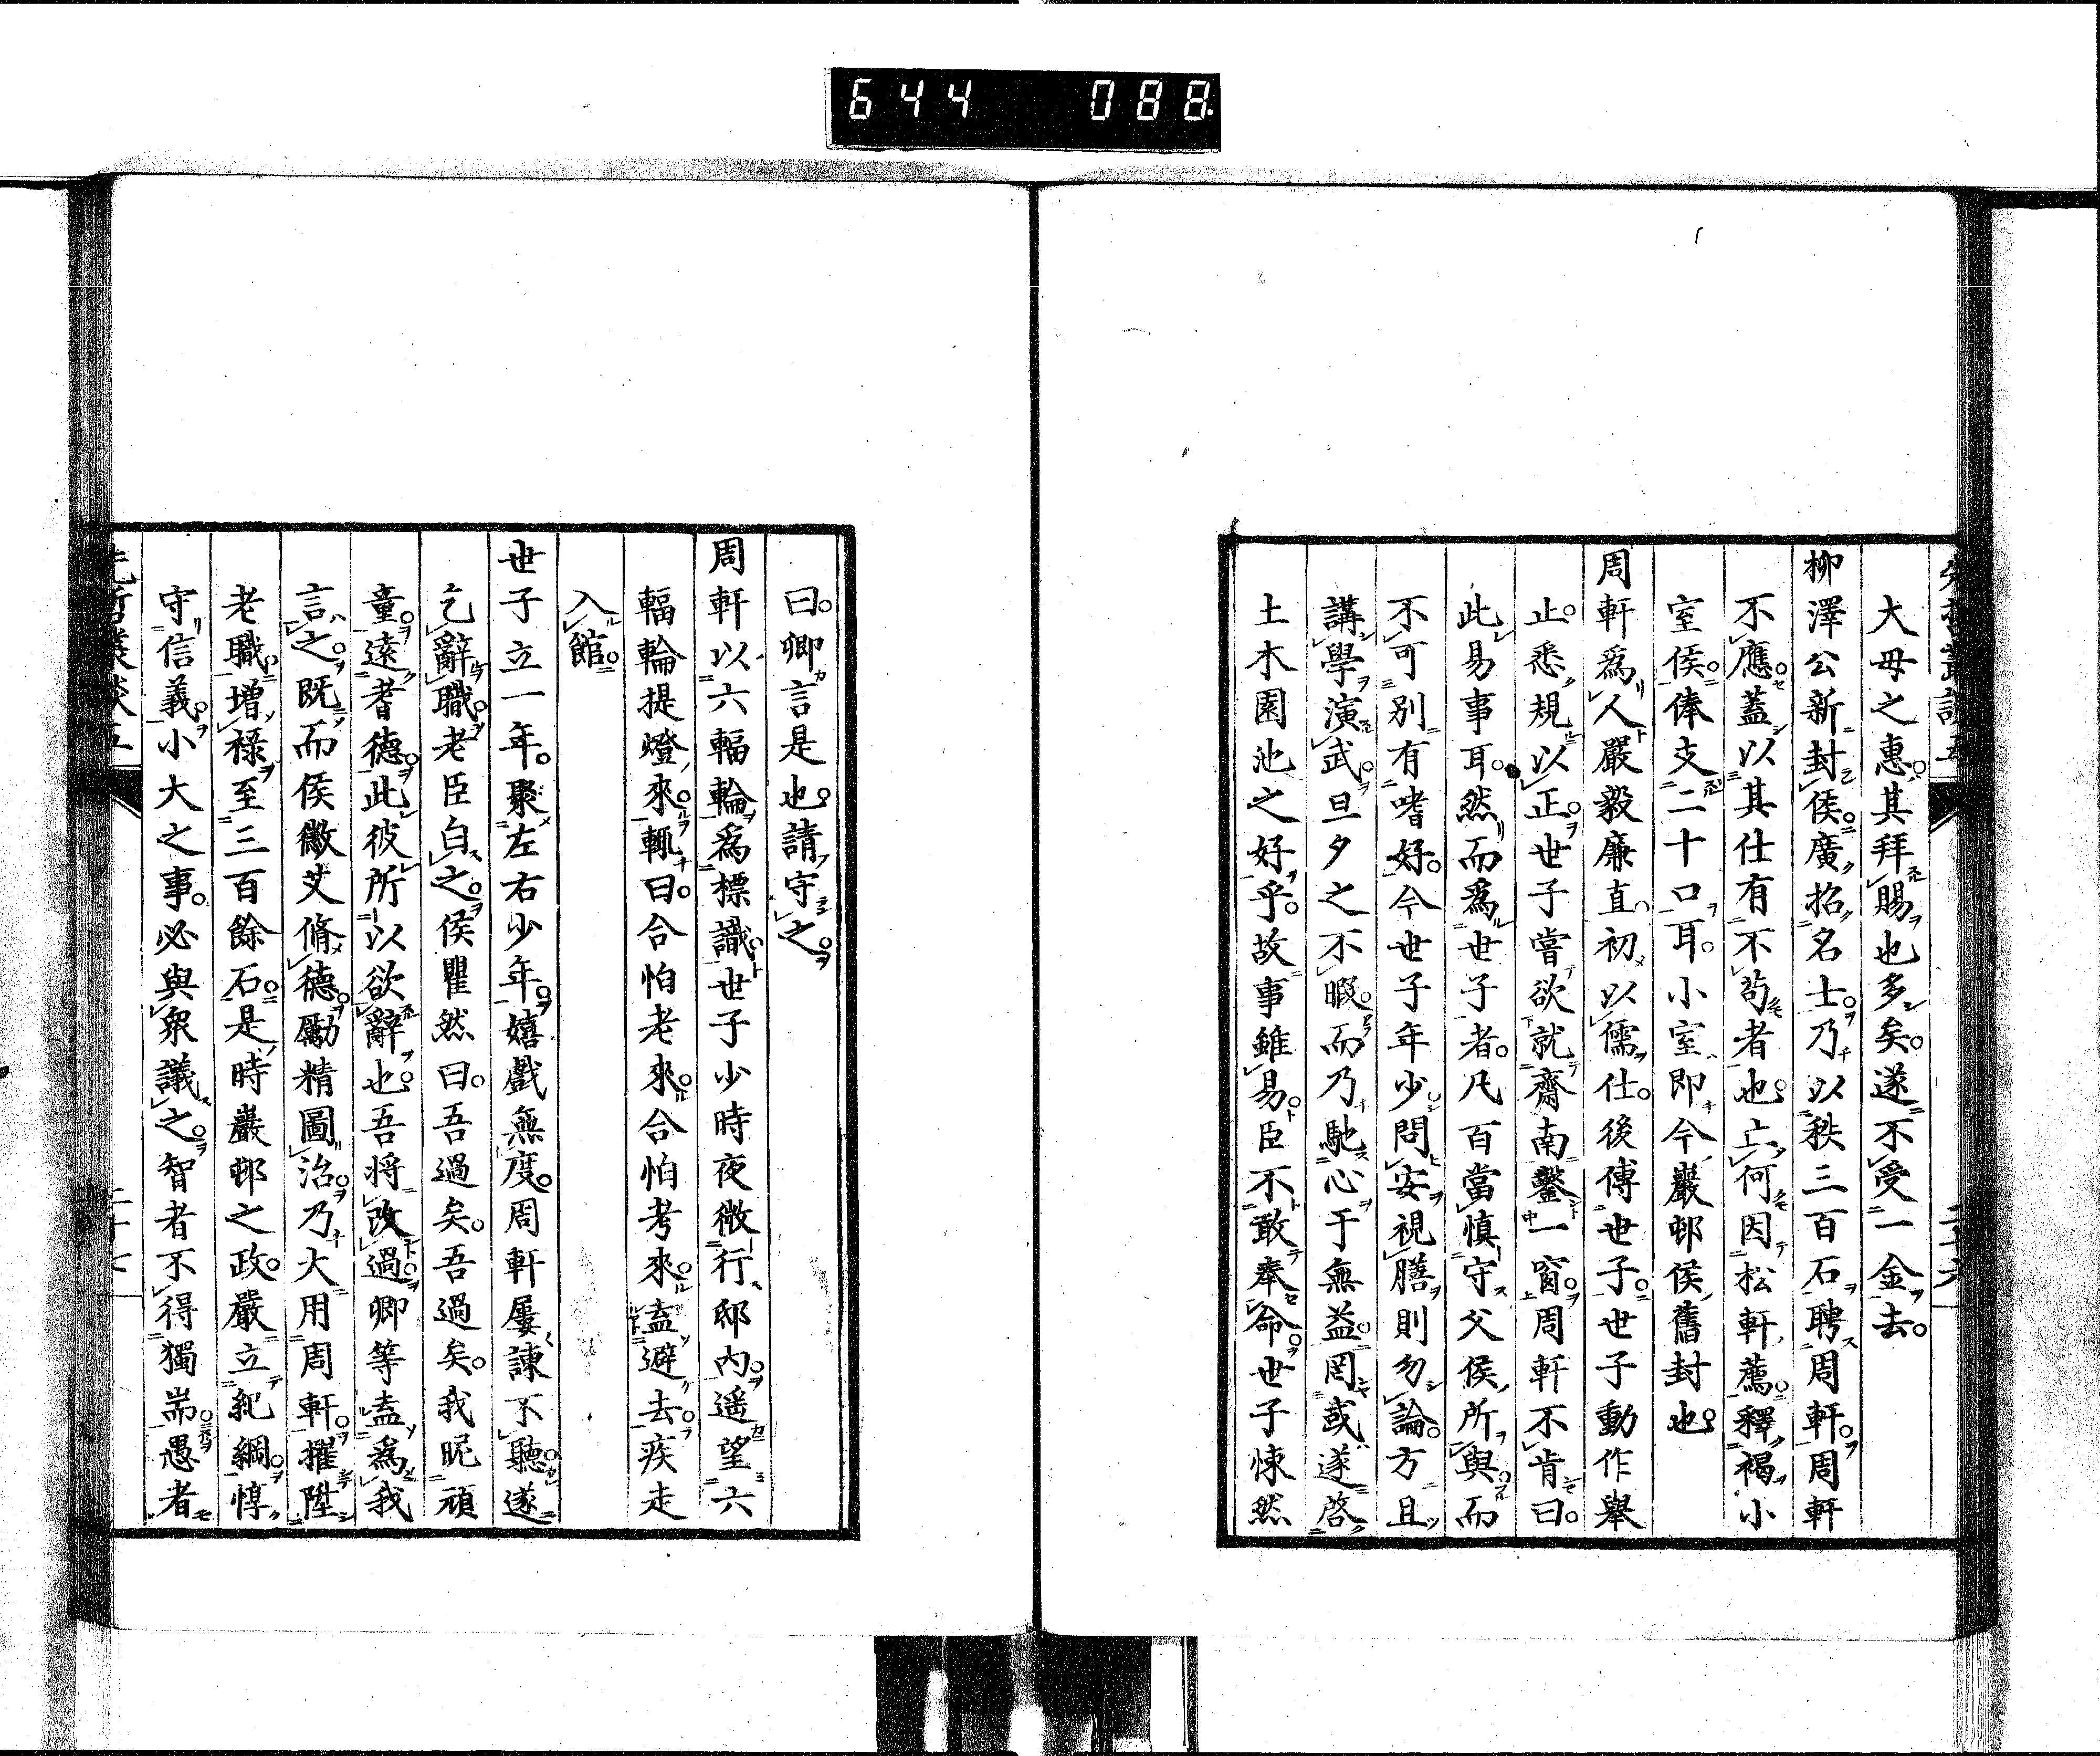 644 088
大母之惠其拜賜也多矣遂不受一金去
柳澤公新封侯廣招名士乃以秩三百石聘周軒周軒
不應蓋以其仕有不苟者也亡何因松軒薦釋褐小
室侯俸支二十口耳小室即今巖邨侯舊封也
周軒爲人嚴毅廉直初以儒仕後傅世子世子動作舉
止悉規以正世子嘗欲就齋南鑿一窗周軒不肯曰
此易事耳然而爲世子者凡百當慎守父侯所與而
不可別有嗜好今世子年少問安視膳則勿論方且
講學演武旦夕之不暇而乃馳心于無益罔或遂啓
土木園池之好乎故事雖易臣不敢奉命世子悚然
曰卿言是也請守之
周軒以六輻輪爲標識世子少時夜微行邸內遥望六
輻輪提燈來輒曰合怕老來合怕考來盍避去疾走
入館
世子立一年聚左右少年嬉戲無度周軒屢諫不聽遂
乞辭職老臣白之侯瞿然曰吾過矣吾過矣我昵頑
童遠耆德此彼所以欲辭也吾將改過卿等盍爲我
言之既而侯徽艾脩德勵精圖治乃大用周軒擢陞
老職增祿至三百餘石是時巖邨之政嚴立紀綱惇
守信義小大之事必與衆議之智者不得獨耑愚者